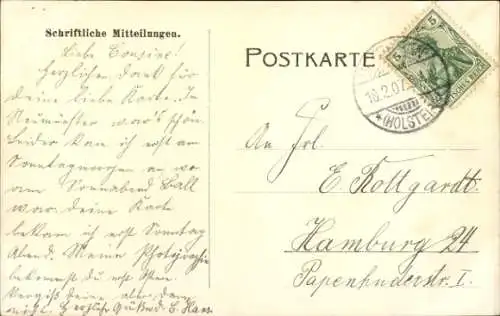 Schriftliche Mitteilungen.
Liebe Cousine!
Herzlichen Dank für
deine liebe Karte. In
Neumünster war's schön.
Leider kam ich erst am
Sonntagmorgen an, wo
am Sonnabend Ball
war. Deine Karte
bekam ich erst Sonntag
Abend. Meine Photographie
bekommst du erst
deine aber dann
nicht. Herzliche Grüße
POSTKARTE
5
10.2.07
(HOLSTEIN)
An Frl.
E. Rottgardt.
Hamburg 24
Papenhuderstr. I.